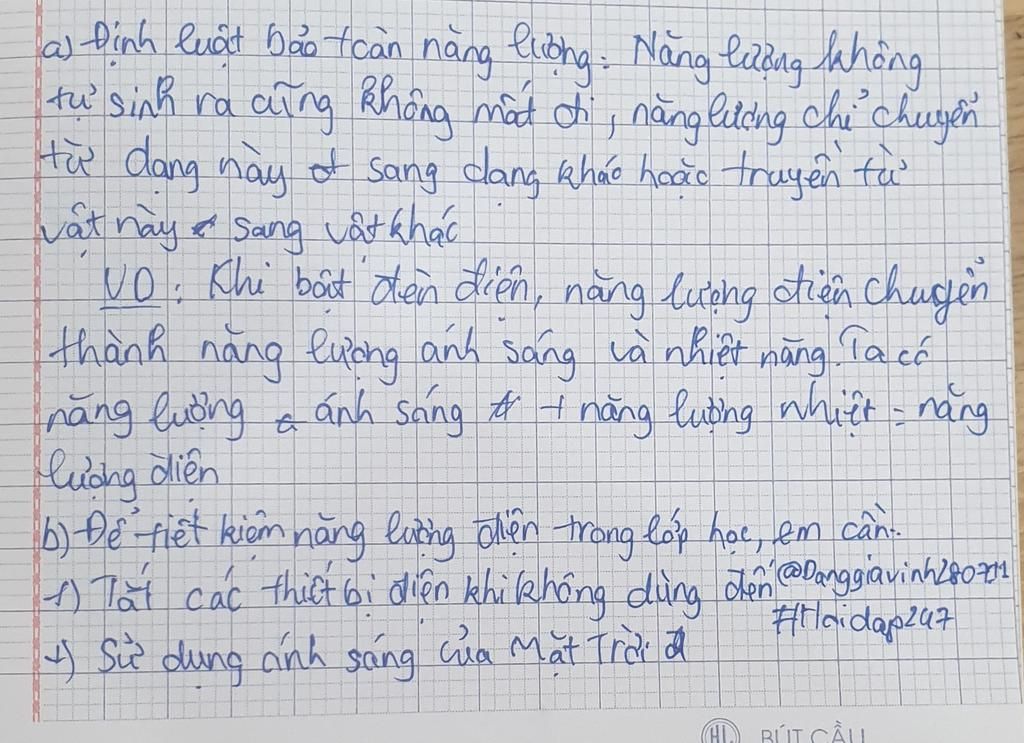 a) Định luật bảo toàn năng lượng: Năng lượng không
tự sinh ra cũng không mất đi, năng lượng chỉ chuyển
từ dạng này sang dạng khác hoặc truyền từ
vật này sang vật khác
VD: Khi bật đèn điện, năng lượng điện chuyển
thành năng lượng ánh sáng và nhiệt năng. Ta có
năng lượng ánh sáng + năng lượng nhiệt = năng
lượng điện
b) Để tiết kiệm năng lượng điện trong lớp học, em cần:
+) Tắt các thiết bị điện khi không dùng đến @Danggiavinh280711
#Hoidap247
+) Sử dụng ánh sáng của Mặt Trời
BÚT CẦU